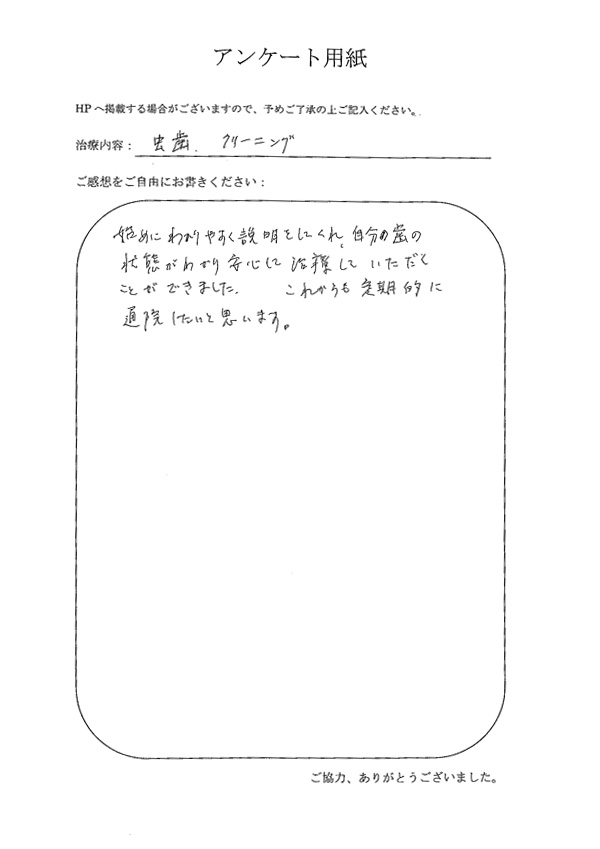 アンケート用紙
HPへ掲載する場合がございますので、予めご了承の上ご記入ください。
治療内容： 虫歯. クリーニング
ご感想をご自由にお書きください：
始めにわかりやすく説明をしてくれ、自分の歯の
状態がわかり安心して治療していただく
ことができました. これからも定期的に
通院したいと思います。
ご協力、ありがとうございました。